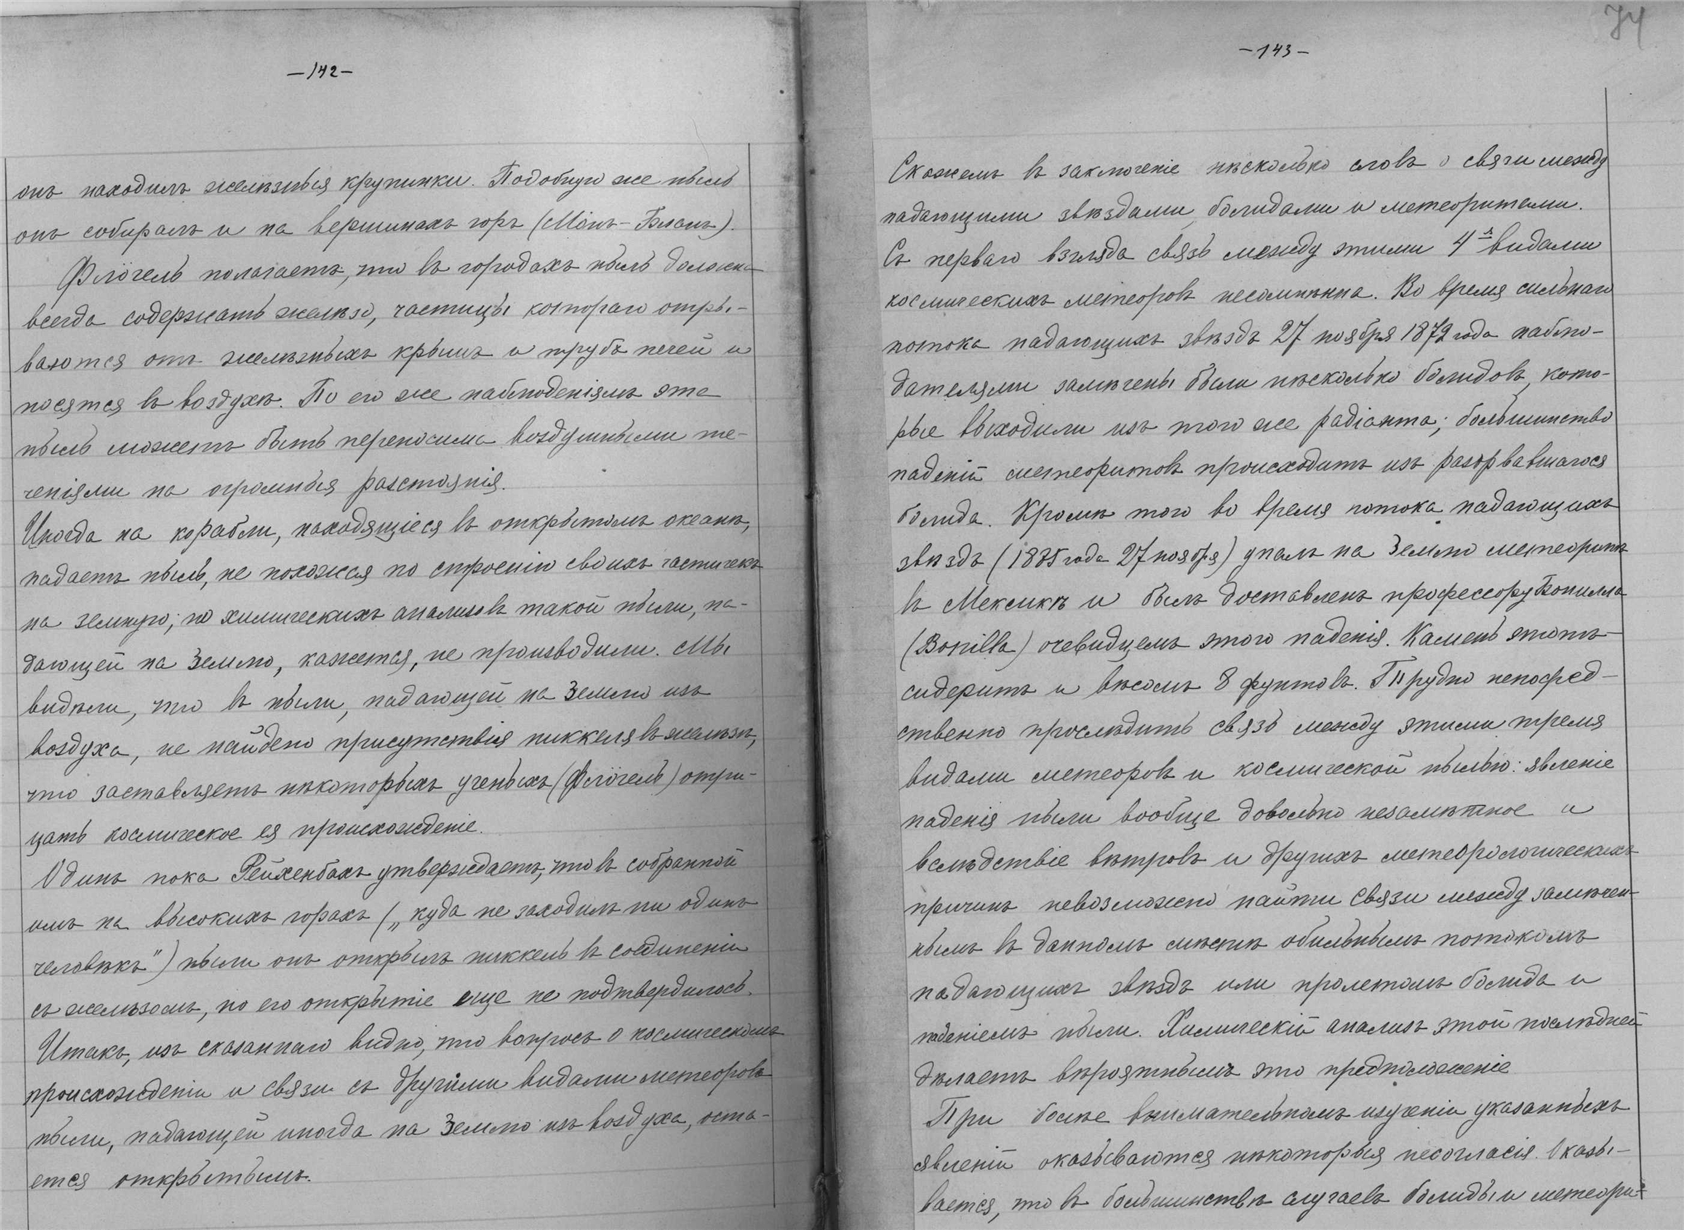 —142—
онъ находилъ желѣзныя крупинки. Подобную же пыль
онъ собиралъ и на вершинахъ горъ (Монъ-Бланъ).
Флёгель полагаетъ, что въ городахъ пыль должна
всегда содержать желѣзо, частицы котораго отры-
ваются отъ желѣзныхъ крышъ и трубъ печей и
носятся въ воздухѣ. По его же наблюденіямъ эта
пыль можетъ быть переносима воздушными те-
ченіями на огромныя разстоянія.
Иногда на корабли, находящіеся въ открытомъ океанѣ,
падаетъ пыль, не похожая по строенію своихъ частичекъ
на земную; но химическихъ анализовъ такой пыли, па-
дающей на Землю, кажется, не производили. Мы
видѣли, что въ пыли, падающей на Землю изъ
воздуха, не найдено присутствія никкеля въ желѣзѣ,
что заставляетъ нѣкоторыхъ ученыхъ (Флёгель) отри-
цать космическое ея происхожденіе.
Одинъ пока Рейхенбахъ утверждаетъ, что въ собранной
имъ на высокихъ горахъ („куда не заходилъ ни одинъ
человѣкъ") пыли онъ открылъ никкель въ соединеніи
съ желѣзомъ, но его открытіе еще не подтвердилось.
Итакъ, изъ сказаннаго видно, что вопросъ о космическомъ
происхожденіи и связи съ другими видами метеоровъ
пыли, падающей иногда на Землю изъ воздуха, оста-
ется открытымъ.
74
—143—
Скажемъ въ заключеніе нѣсколько словъ о связи между
падающими звѣздами, болидами и метеоритами.
Съ перваго взгляда связь между этими 4-я видами
космическихъ метеоровъ несомнѣнна. Во время сильнаго
потока падающихъ звѣздъ 27 ноября 1872 года наблю-
дателями замѣчены были нѣсколько болидовъ, кото-
рые выходили изъ того же радіанта; большинство
паденій метеоритовъ происходитъ изъ разорвавшагося
болида. Кромѣ того во время потока падающихъ
звѣздъ (1885 года 27 ноября) упалъ на Землю метеоритъ
въ Мексикѣ и былъ доставленъ профессору Бонилла
(Bonilla) очевидцемъ этого паденія. Камень этотъ—
сидеритъ и вѣсомъ 8 фунтовъ. Трудно непосред-
ственно прослѣдить связь между этими тремя
видами метеоровъ и космической пылью: явленіе
паденія пыли вообще довольно незамѣтное и
вслѣдствіе вѣтровъ и другихъ метеорологическихъ
причинъ невозможно найти связи между замѣчен-
нымъ въ данномъ мѣстѣ обильнымъ потокомъ
падающихъ звѣздъ или пролетомъ болида и
паденіемъ пыли. Химическій анализъ этой послѣдней
дѣлаетъ вѣроятнымъ это предположеніе
При болѣе внимательномъ изученіи указанныхъ
явленій оказываются нѣкоторыя несогласія. Оказы-
вается, что въ большинствѣ случаевъ болиды и метеори-